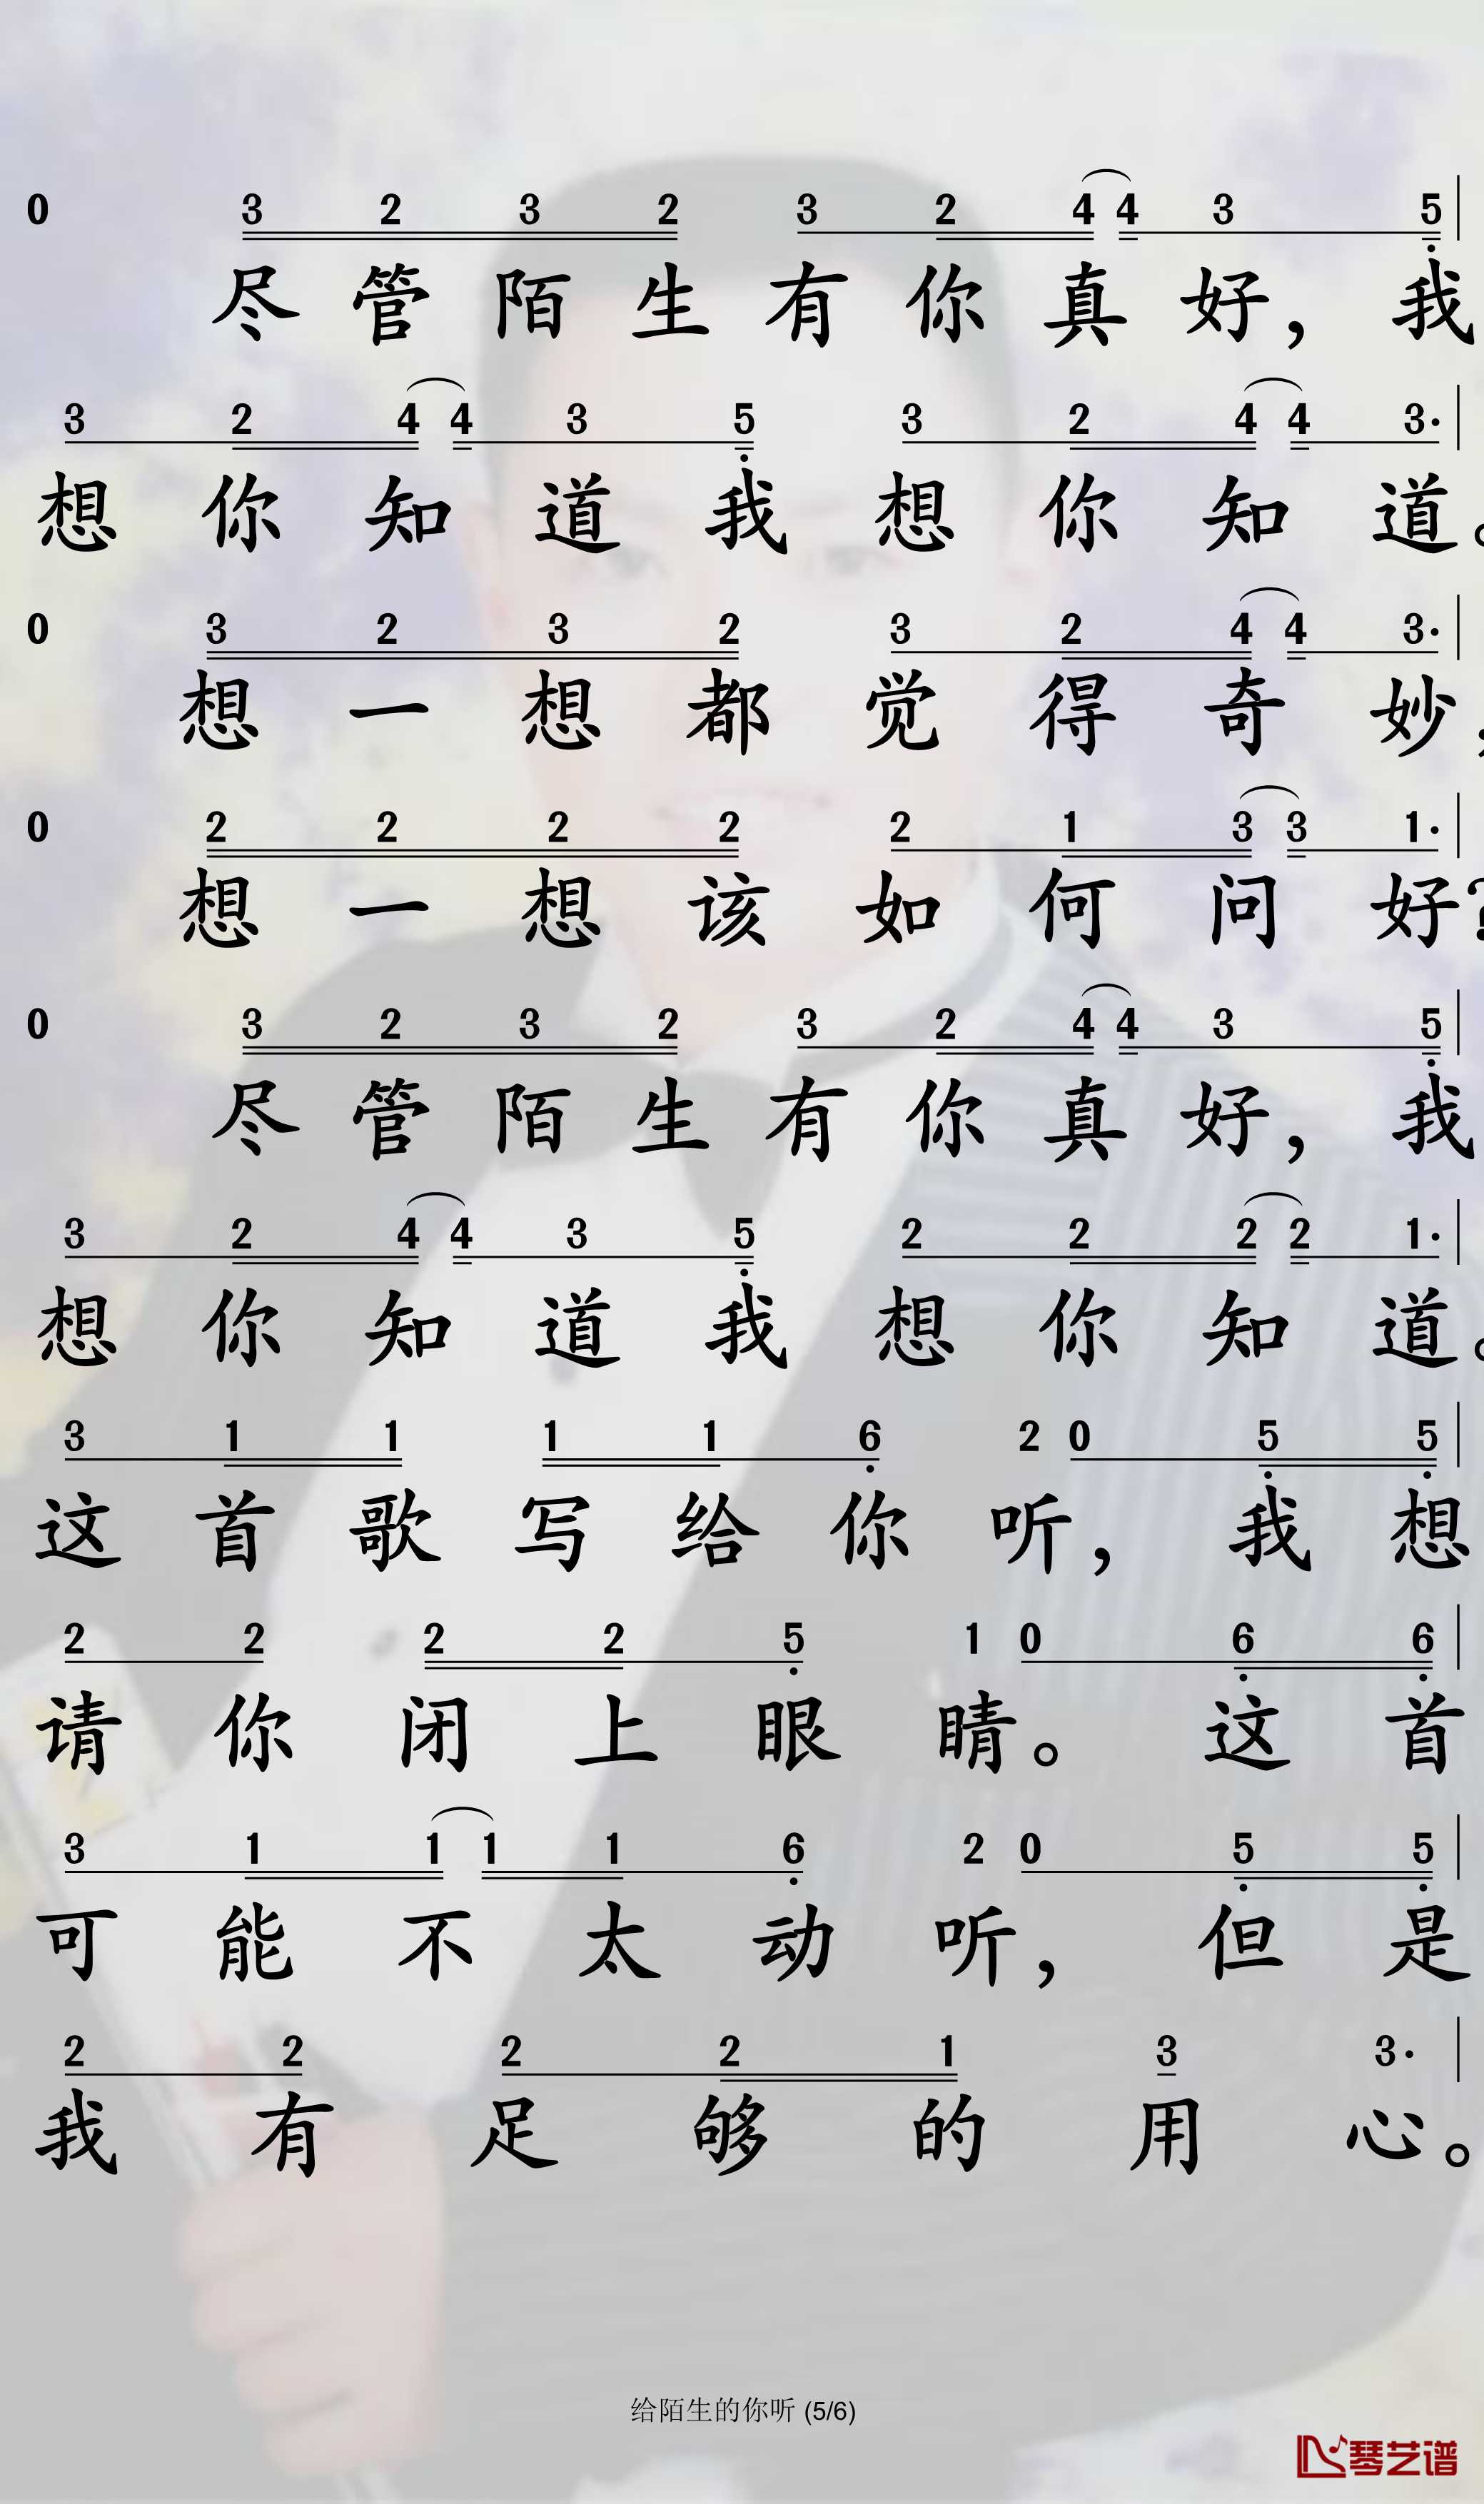 0 3 2 3 2 3 2 4 4 3 5
尽管陌生有你真好，我
3 2 4 4 3 5 3 2 4 4 3·
想你知道我想你知道。
0 3 2 3 2 3 2 4 4 3·
想一想都觉得奇妙，
0 2 2 2 2 2 1 3 3 1·
想一想该如何问好？
0 3 2 3 2 3 2 4 4 3 5
尽管陌生有你真好，我
3 2 4 4 3 5 2 2 2 2 1·
想你知道我想你知道。
3 1 1 1 1 6 2 0 5 5
这首歌写给你听，我想
2 2 2 2 5 1 0 6 6
请你闭上眼睛。这首
3 1 1 1 1 6 2 0 5 5
可能不太动听，但是
2 2 2 2 1 3 3·
我有足够的用心。
给陌生的你听 (5/6)
琴艺谱